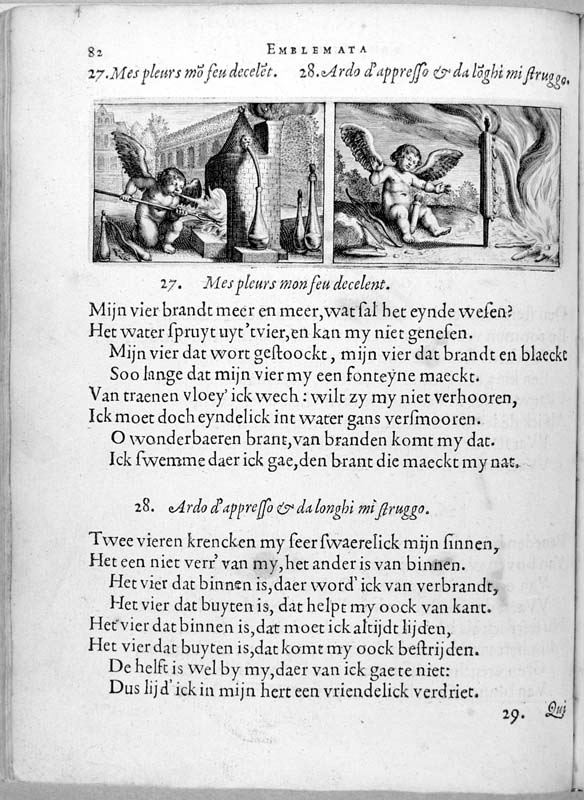 82 EMBLEMATA
27. Mes pleurs mõ feu decelẽt. 28. Ardo d'appreſſo & da lõghi mi ſtruggo.
27. Mes pleurs mon feu decelent.
Mijn vier brandt meer en meer, wat ſal het eynde weſen?
Het water ſpruyt uyt 'tvier, en kan my niet geneſen.
Mijn vier dat wort geſtoockt, mijn vier dat brandt en blaeckt
Soo lange dat mijn vier my een fonteyne maeckt.
Van traenen vloey' ick wech: wilt zy my niet verhooren,
Ick moet doch eyndelick int water gans verſmooren.
O wonderbaeren brant, van branden komt my dat.
Ick ſwemme daer ick gae, den brant die maeckt my nat.
28. Ardo d'appreſſo & da longhi mi ſtruggo.
Twee vieren krencken my ſeer ſwaerelick mijn ſinnen,
Het een niet verr' van my, het ander is van binnen.
Het vier dat binnen is, daer word' ick van verbrandt,
Het vier dat buyten is, dat helpt my oock van kant.
Het vier dat binnen is, dat moet ick altijdt lijden,
Het vier dat buyten is, dat komt my oock beſtrijden.
De helft is wel by my, daer van ick gae te niet:
Dus lijd' ick in mijn hert een vriendelick verdriet.
29. Qui